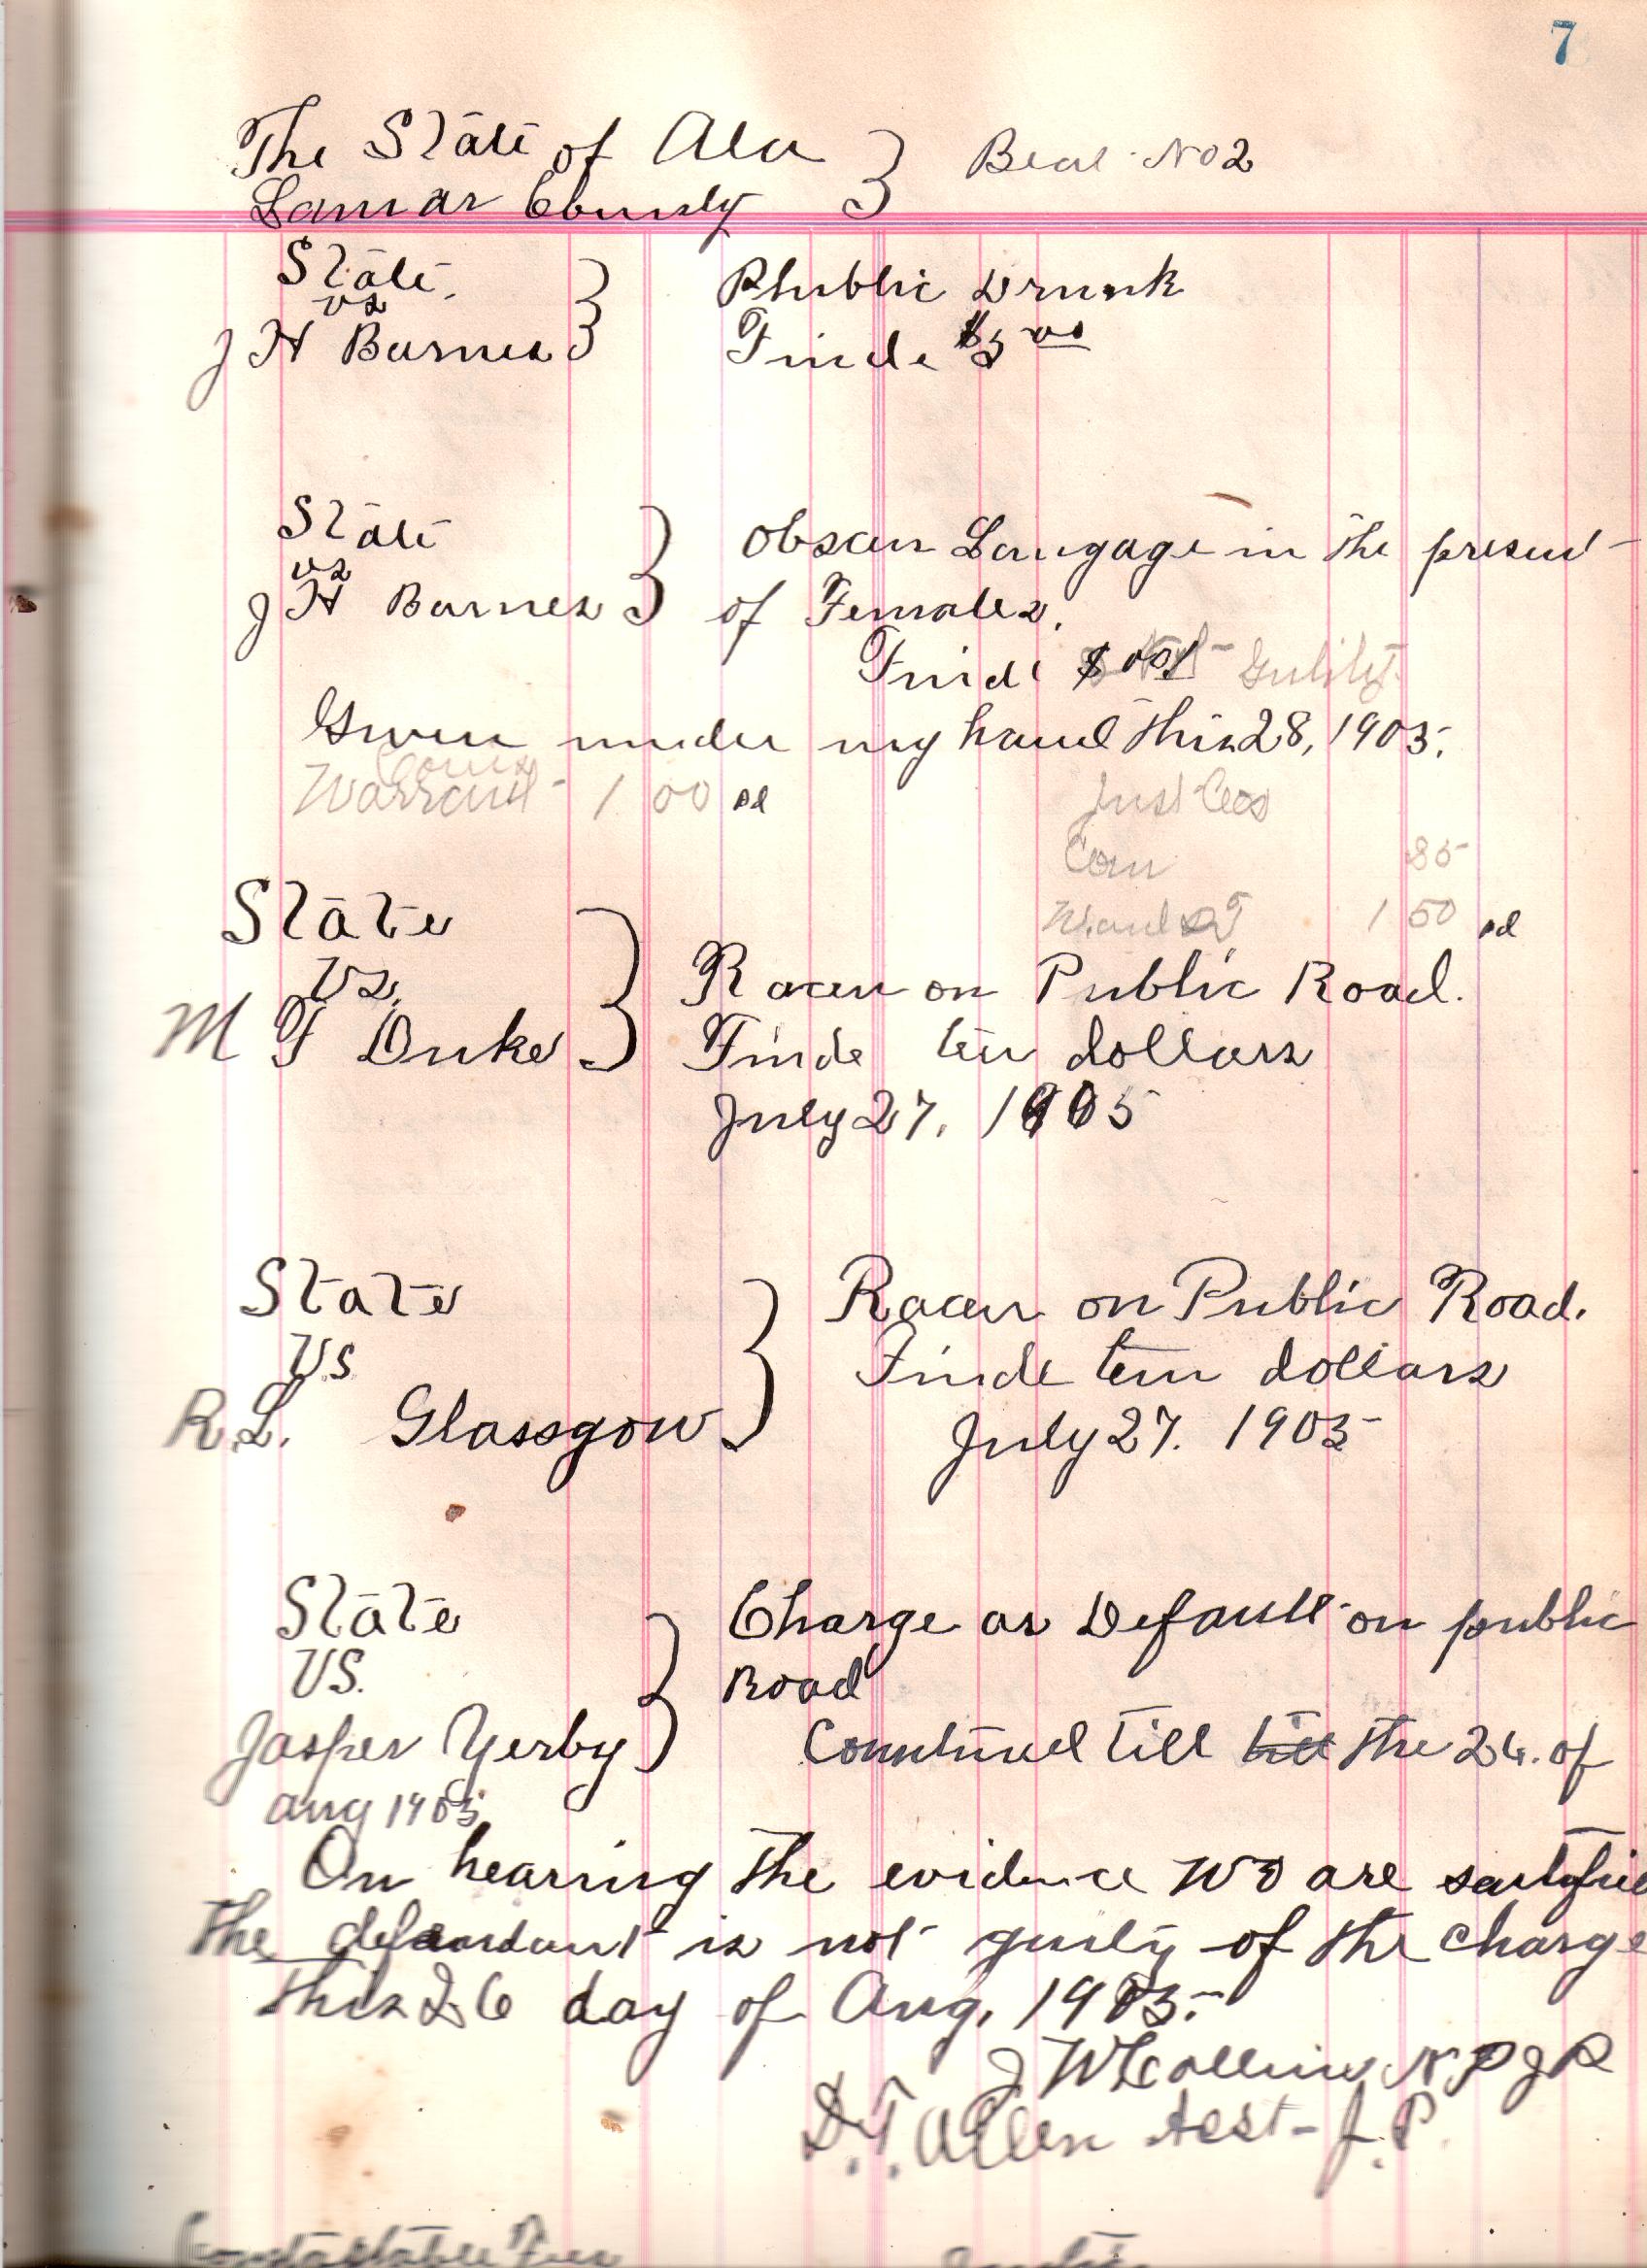 7
The State of Ala } Beat No 2
Lamar County
State
vs
J H Barnes } Phublic Drunk
Finde $5 00
State
vs
J H Barnes } Obscen Langage in the present
of Females.
Finde $ 00 Guility
Given under my hand this 28, 1905.
Warrant 1 00 pd Just Cos
Con 85
1 50 pd
State
Vs.
M F Duke } Racen on Public Road.
Finde ten dollars
July 27, 1905
State
V.S
R.L. Glassgow } Racen on Public Road.
Finde ten dollars
July 27. 1905
State
VS.
Jasper Yerby } Charge as Default on public
Road
Conntinued till till the 26. of
aug 1905
On hearring the evidence we are sartifie
the defaindant is not guily of the charge
this 26 day of Aug. 1905.
J W Collins N P J P
D.T. Allen Aest- J.P.
Constable Fees Justice